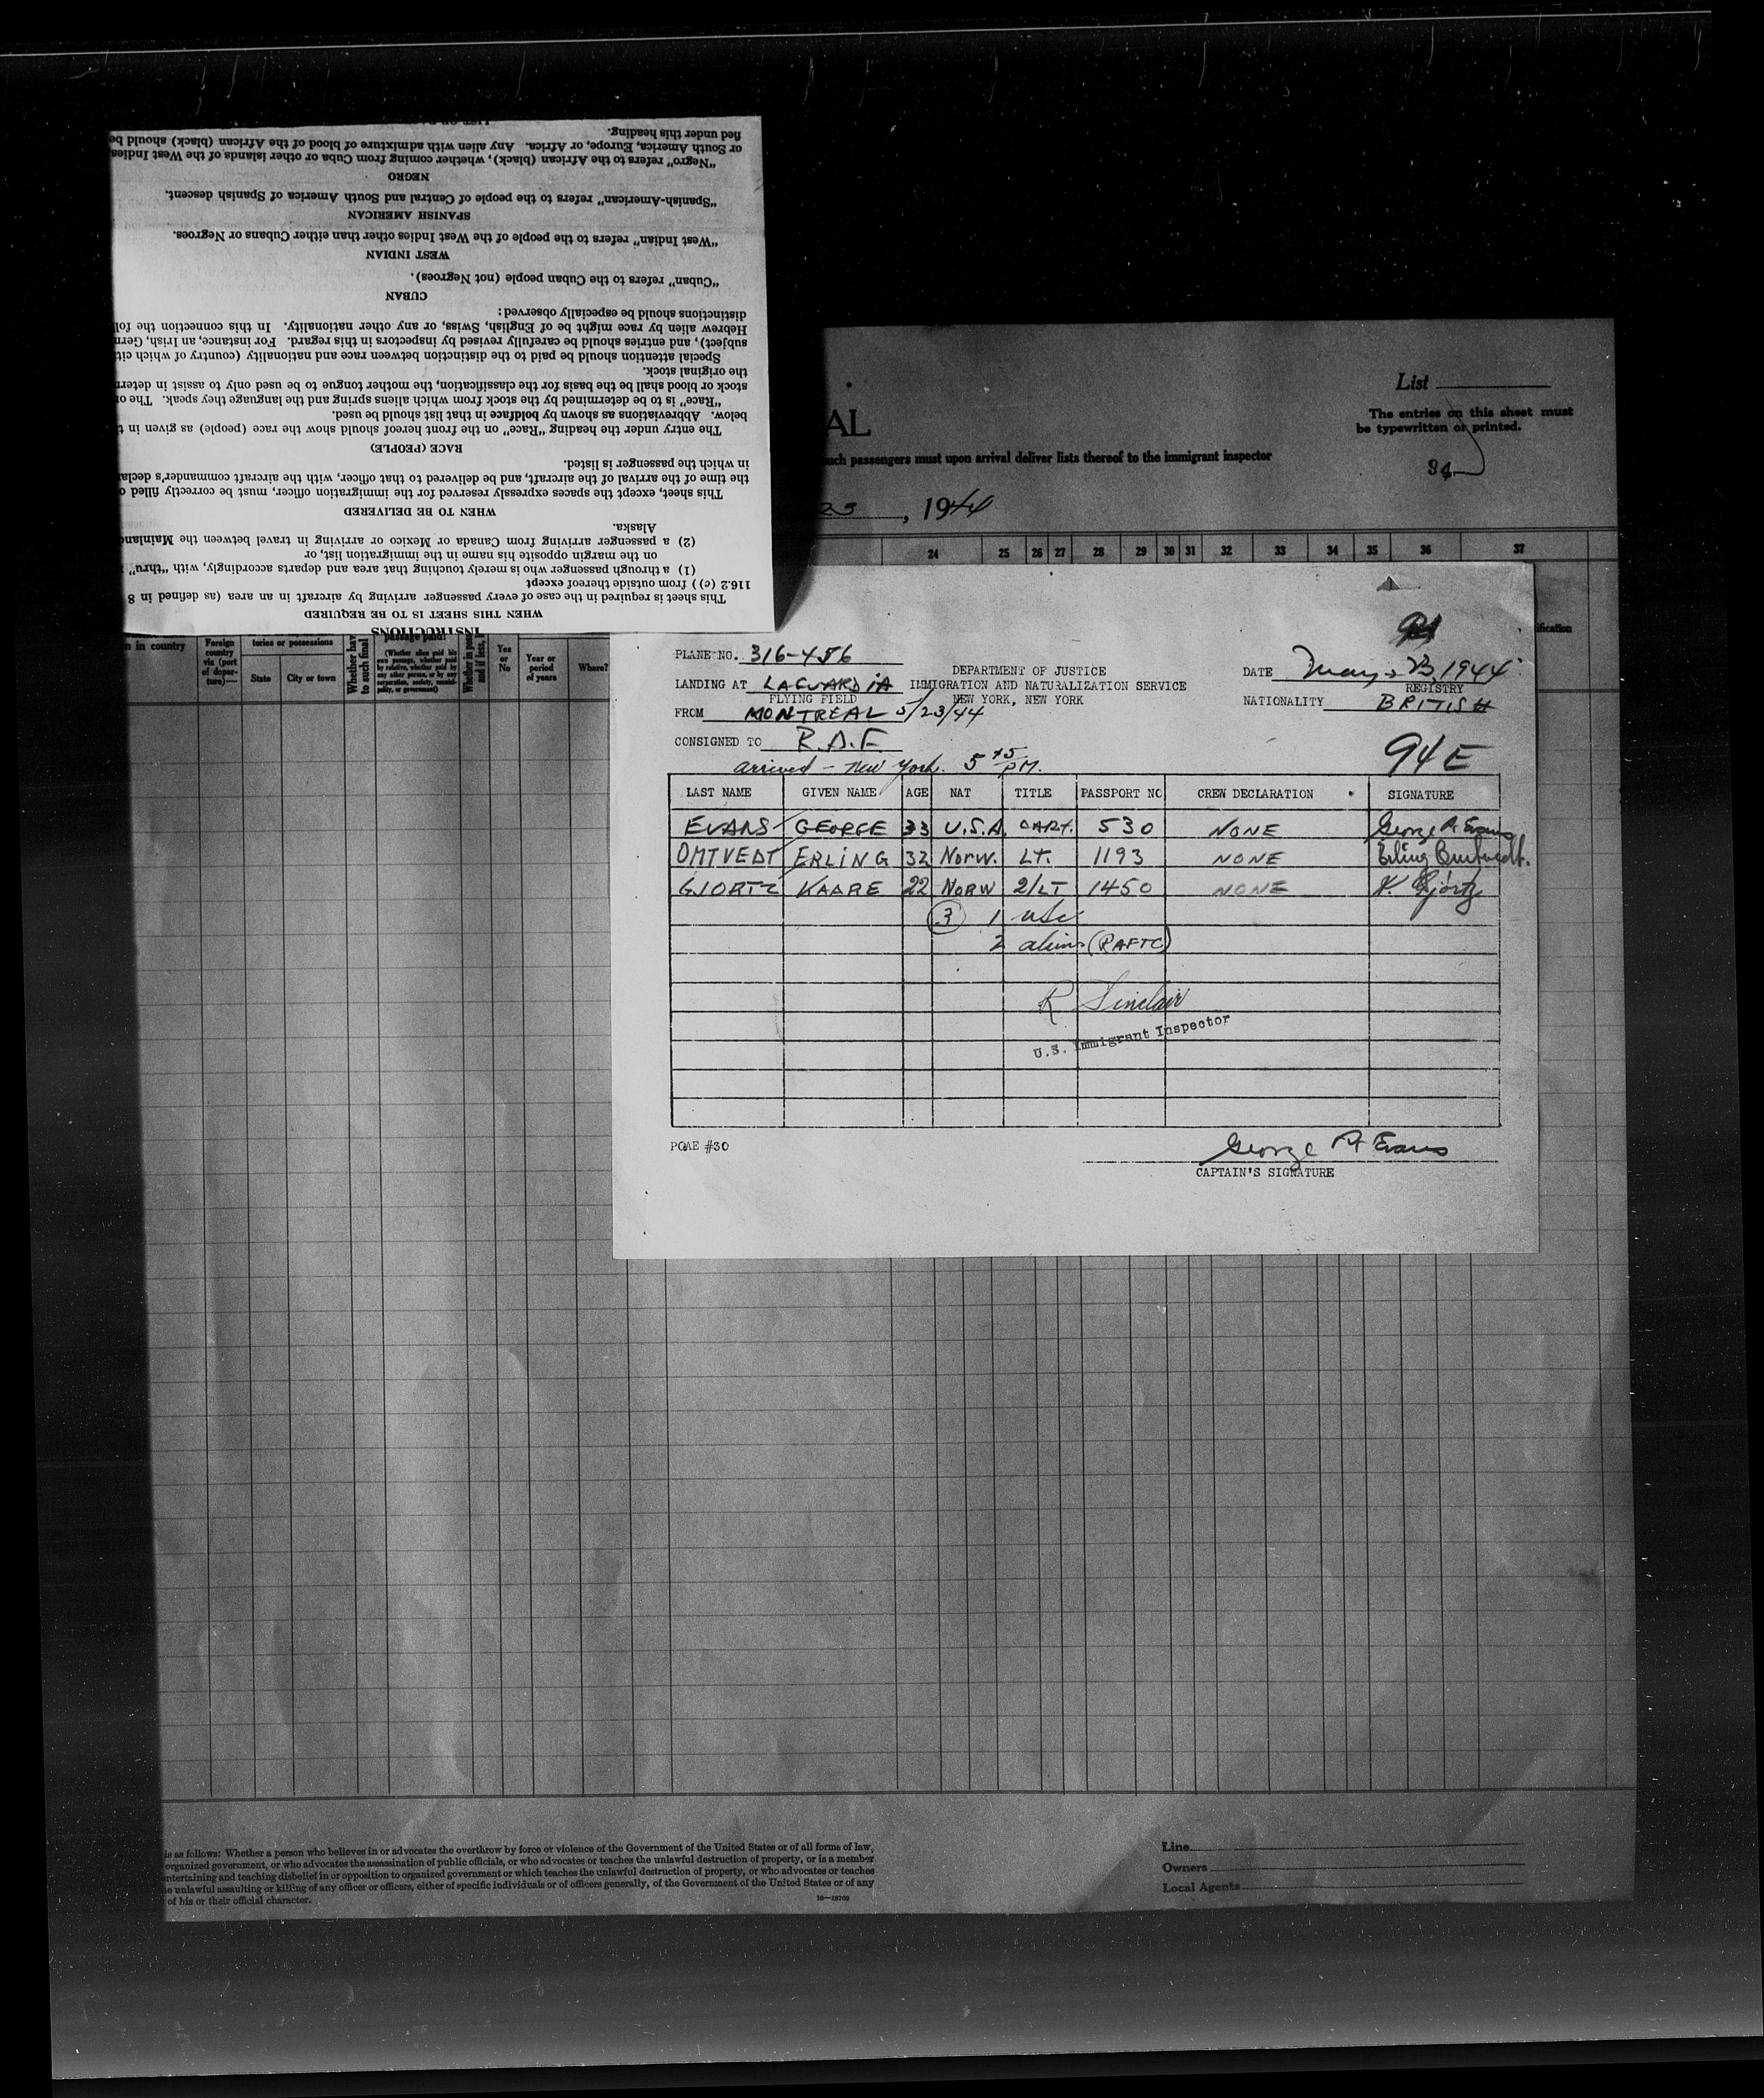 LIST OR
fied under this heading.
or South America, Europe, or Africa. Any alien with admixture of blood of the African (black) should be
"Negro" refers to the African (black), whether coming from Cuba or other islands of the West Indies
NEGRO
"Spanish-American" refers to the people of Central and South America of Spanish descent.
SPANISH AMERICAN
"West Indian" refers to the people of the West Indies other than either Cubans or Negroes.
WEST INDIAN
"Cuban" refers to the Cuban people (not Negroes).
CUBAN
distinctions should be especially observed:
Hebrew alien by race might be of English, Swiss, or any other nationality. In this connection the fol
subject), and entries should be carefully revised by inspectors in this regard. For instance, an Irish, Germ
Special attention should be paid to the distinction between race and nationality (country of which citi
the original stock.
stock or blood shall be the basis for the classification, the mother tongue to be used only to assist in determ
"Race" is to be determined by the stock from which aliens spring and the language they speak. The or
below. Abbreviations as shown by boldface in that list should be used.
The entry under the heading "Race" on the front hereof should show the race (people) as given in t
RACE (PEOPLE)
in which the passenger is listed.
the time of the arrival of the aircraft, and be delivered to that officer, with the aircraft commander's declar
This sheet, except the spaces expressly reserved for the immigration officer, must be correctly filled o
WHEN TO BE DELIVERED
Alaska.
(2) a passenger arriving from Canada or Mexico or arriving in travel between the Mainland
on the margin opposite his name in the immigration list, or
(1) a through passenger who is merely touching that area and departs accordingly, with "thru"
116.2 (c)) from outside thereof except
This sheet is required in the case of every passenger arriving by aircraft in an area (as defined in 8
WHEN THIS SHEET IS TO BE REQUIRED
INSTRUCTIONS
List
AL
The entries on this sheet must
be typewritten or printed.
uch passengers must upon arrival deliver lists thereof to the immigrant inspector
94
23, 1944
24 25 26 27 28 29 30 31 32 33 34 35 36 37
n in country
Foreign country via (port of depar-ture)—
tories or possessions
State City or town
Whether hav to such final
passage paid?
(Whether alien paid his own passage, whether paid by relative, whether paid by any other person, or by any corporation, society, munici-pality, or government)
Whether in poss and if less,
Yes or No
Year or period of years
Where?
ification
PLANE NO. 316-456
DEPARTMENT OF JUSTICE
DATE May 23, 1944
LANDING AT LAGUARDIA IMMIGRATION AND NATURALIZATION SERVICE
REGISTRY
FLYING FIELD NEW YORK, NEW YORK
NATIONALITY BRITISH
FROM MONTREAL 5/23/44
CONSIGNED TO R.A.F.
94E
arrived - New York. 5 45 PM.
LAST NAME GIVEN NAME AGE NAT TITLE PASSPORT NO CREW DECLARATION SIGNATURE
EVANS GEORGE 33 U.S.A. CAPT. 530 NONE George A. Evans
OMTVEDT ERLING 32 NORW. LT. 1193 NONE Erling Omtvedt.
GJORTZ KAARE 22 NORW 2/LT 1450 NONE K. Gjörtz
3 1 usc
2 aliens (RAFTC)
R Sinclair
U.S. Immigrant Inspector
PQAE #30
George A Evans
CAPTAIN'S SIGNATURE
is as follows: Whether a person who believes in or advocates the overthrow by force or violence of the Government of the United States or of all forms of law,
organized government, or who advocates the assassination of public officials, or who advocates or teaches the unlawful destruction of property, or is a member
ntertaining and teaching disbelief in or opposition to organized government or which teaches the unlawful destruction of property, or who advocates or teaches
e unlawful assaulting or killing of any officer or officers, either of specific individuals or of officers generally, of the Government of the United States or of any
of his or their official character.
16—18709
Line
Owners
Local Agents